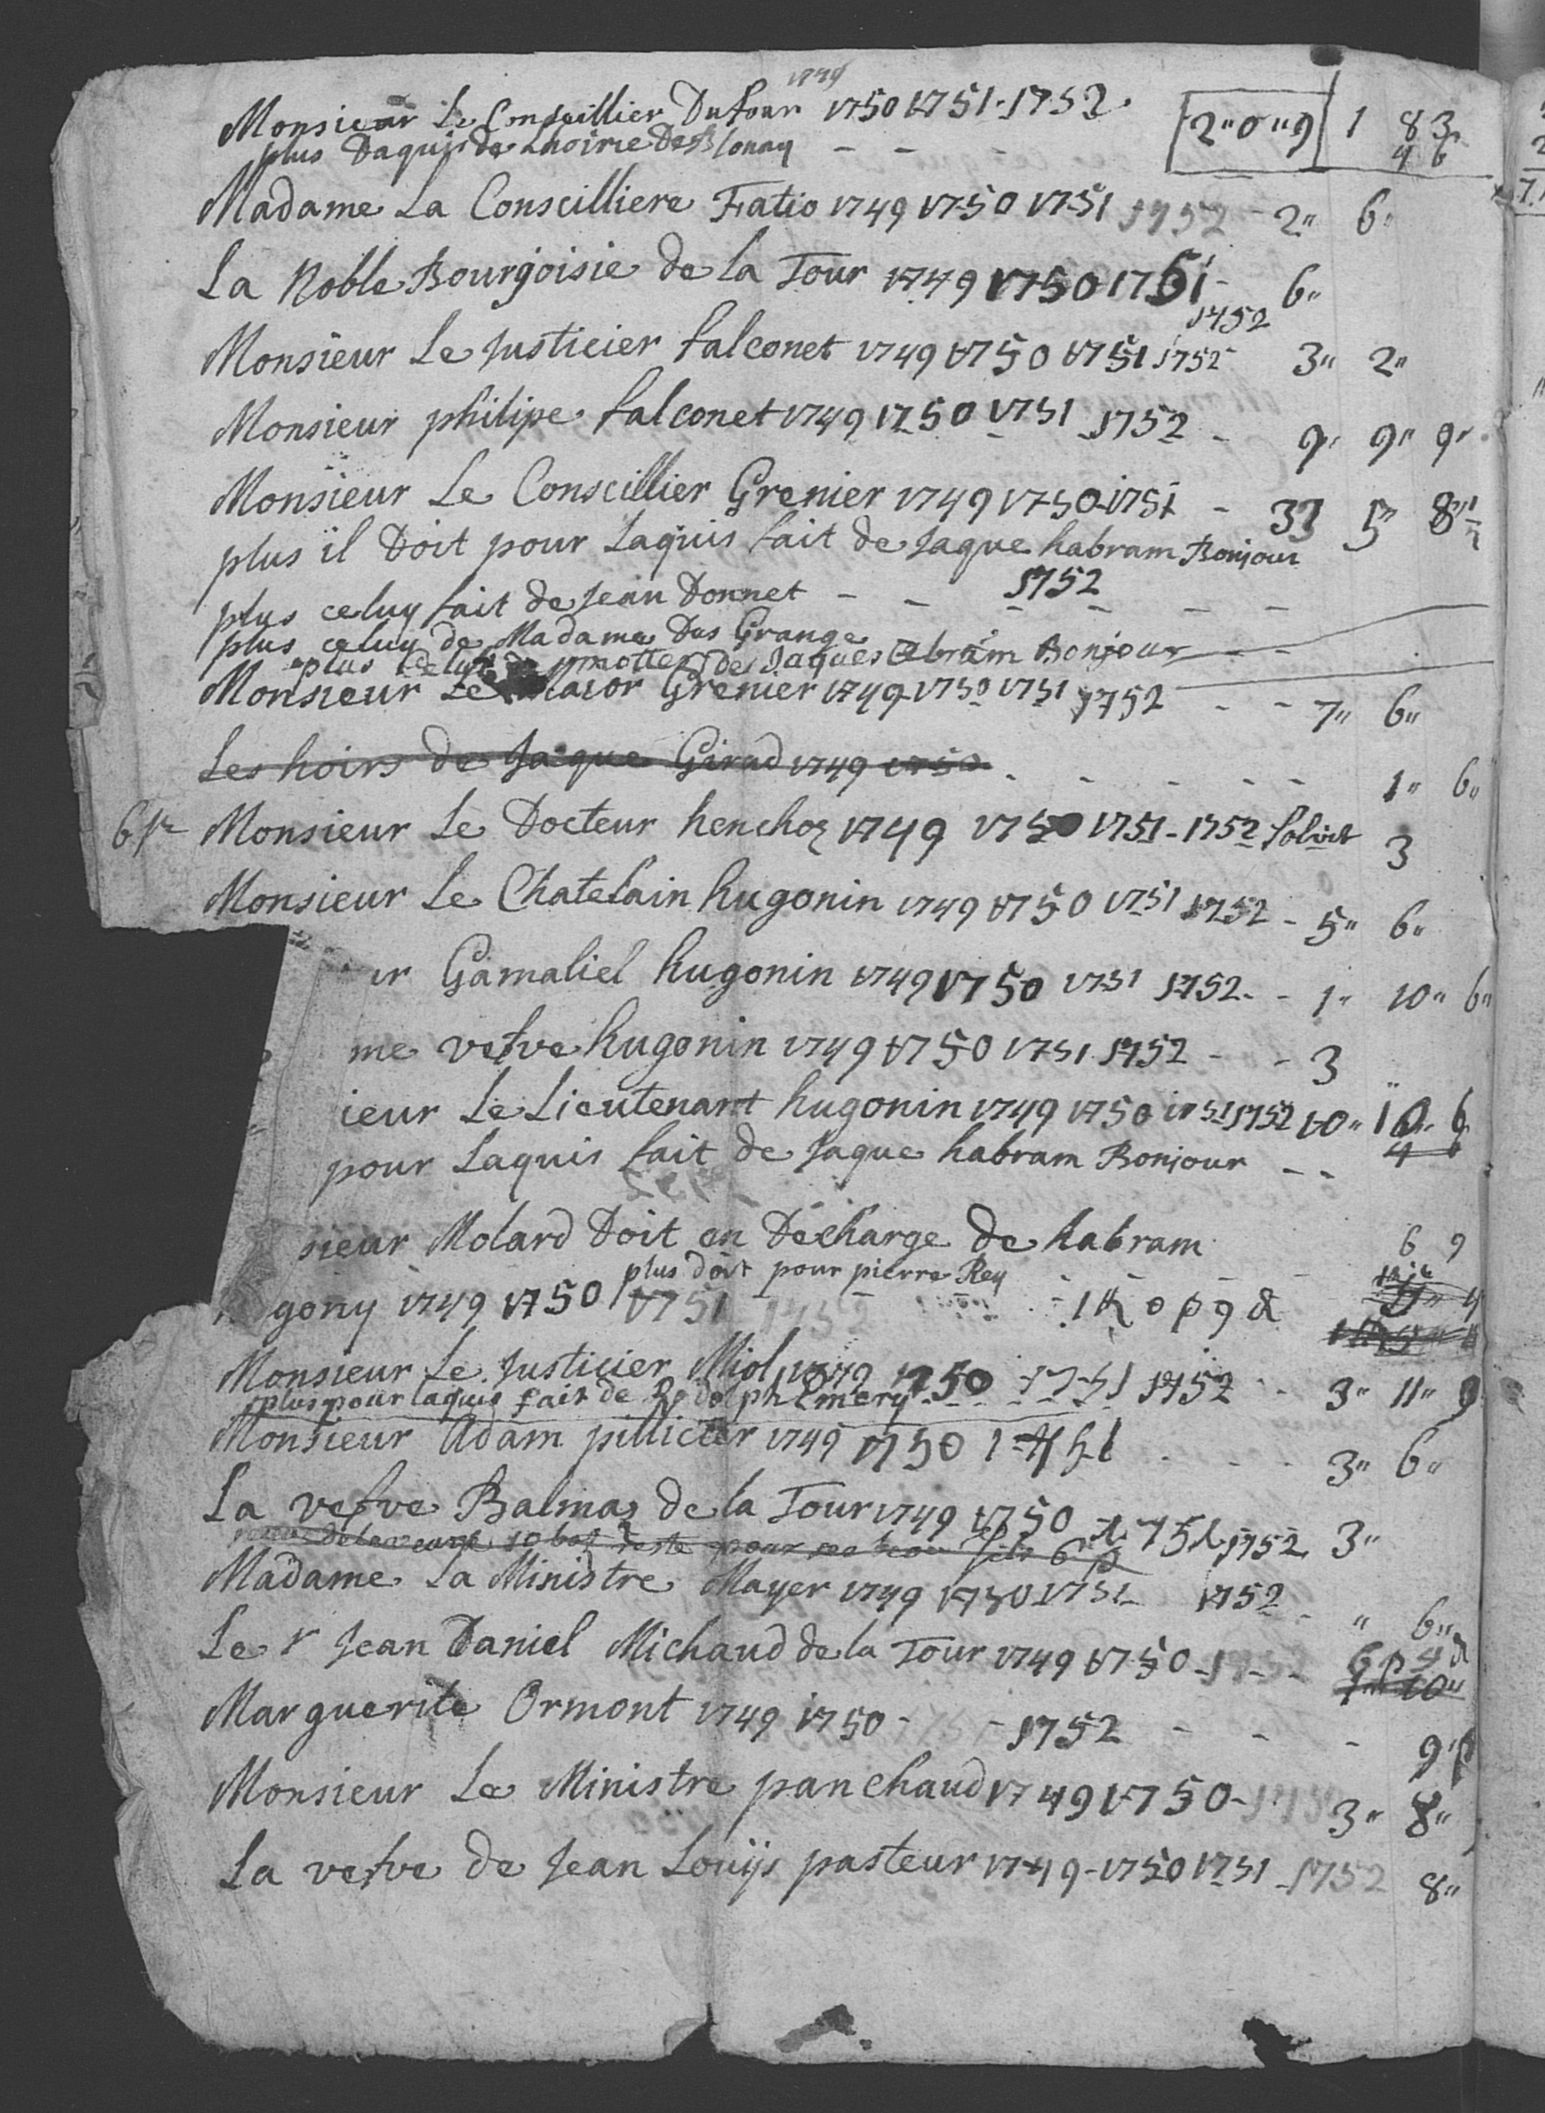 1749
Monsieur Le Conseillier Dufour 1750 1751 - 1752 2"0"9 1 8 3
plus Daquis de Lhoirie De Blonay - - - 4 6
Madame La Conseilliere Fatio 1749 1750 1751 1752 - 2" 6"
La Noble Bourgoisie de la Tour 1749 1750 1751 - 6"
1752
Monsieur Le Justicier falconet 1749 1750 1751 1752 - 3" 2"
Monsieur philipe falconet 1749 1750 1751 1752 - 9" 9" 9"
Monsieur Le Conseillier Grenier 1749 1750 - 1751 - 33 5" 8"
plus il Doit pour Laquis fait de Jaque habram Bonjour
plus celuy fait de Jean Donnet - - 1752 - - -
plus celuy de Madame Des Grange
plus de Jaques abram Bonjour - -
Monsieur Le Maior Grenier 1749 1750 1751 1752 - - 7" 6"
Les hoirs de Jaque Girad 1749 1750 - - - - - 1" 6"
Monsieur Le Docteur henchoz 1749 1750 1751 - 1752 Solvit 3
Monsieur Le Chatelain hugonin 1749 1750 1751 1752 - 5" 6"
ur Gamaliel hugonin 1749 1750 1751 1752 - - 1" 10" 6"
me vefve hugonin 1749 1750 1751 1752 - - 3
ieur Le Lieutenant hugonin 1749 1750 1751 1752 10" 10" 6
pour Laquis fait de Jaque habram Bonjour - - 4 6
sieur Molard Doit en Decharge de habram 6 9
plus doit pour pierre Rey - - - -
gony 1749 1750 1751 1752
Monsieur Le Justicier Miol 1749 1750 1751 1752 - - 3" 11" 9
plus pour laquis fait de Rodolph Emery
Monsieur Adam pillicier 1749 1750 1751 - - - 3" 6"
La vefve Balmas de la Tour 1749 1750 1751 1752 3"
Madame La Ministre Mayer 1749 1750 1751 1752 - " 6"
Le Sr Jean Daniel Michaud de la Tour 1749 1750 - - -
Marguerite Ormont 1749 1750 - - 1752 - - - 9
Monsieur Le Ministre panchaud 1749 1750 - 3" 8"
La vefve de Jean Louijs pasteur 1749 - 1750 1751 - 1752 8"